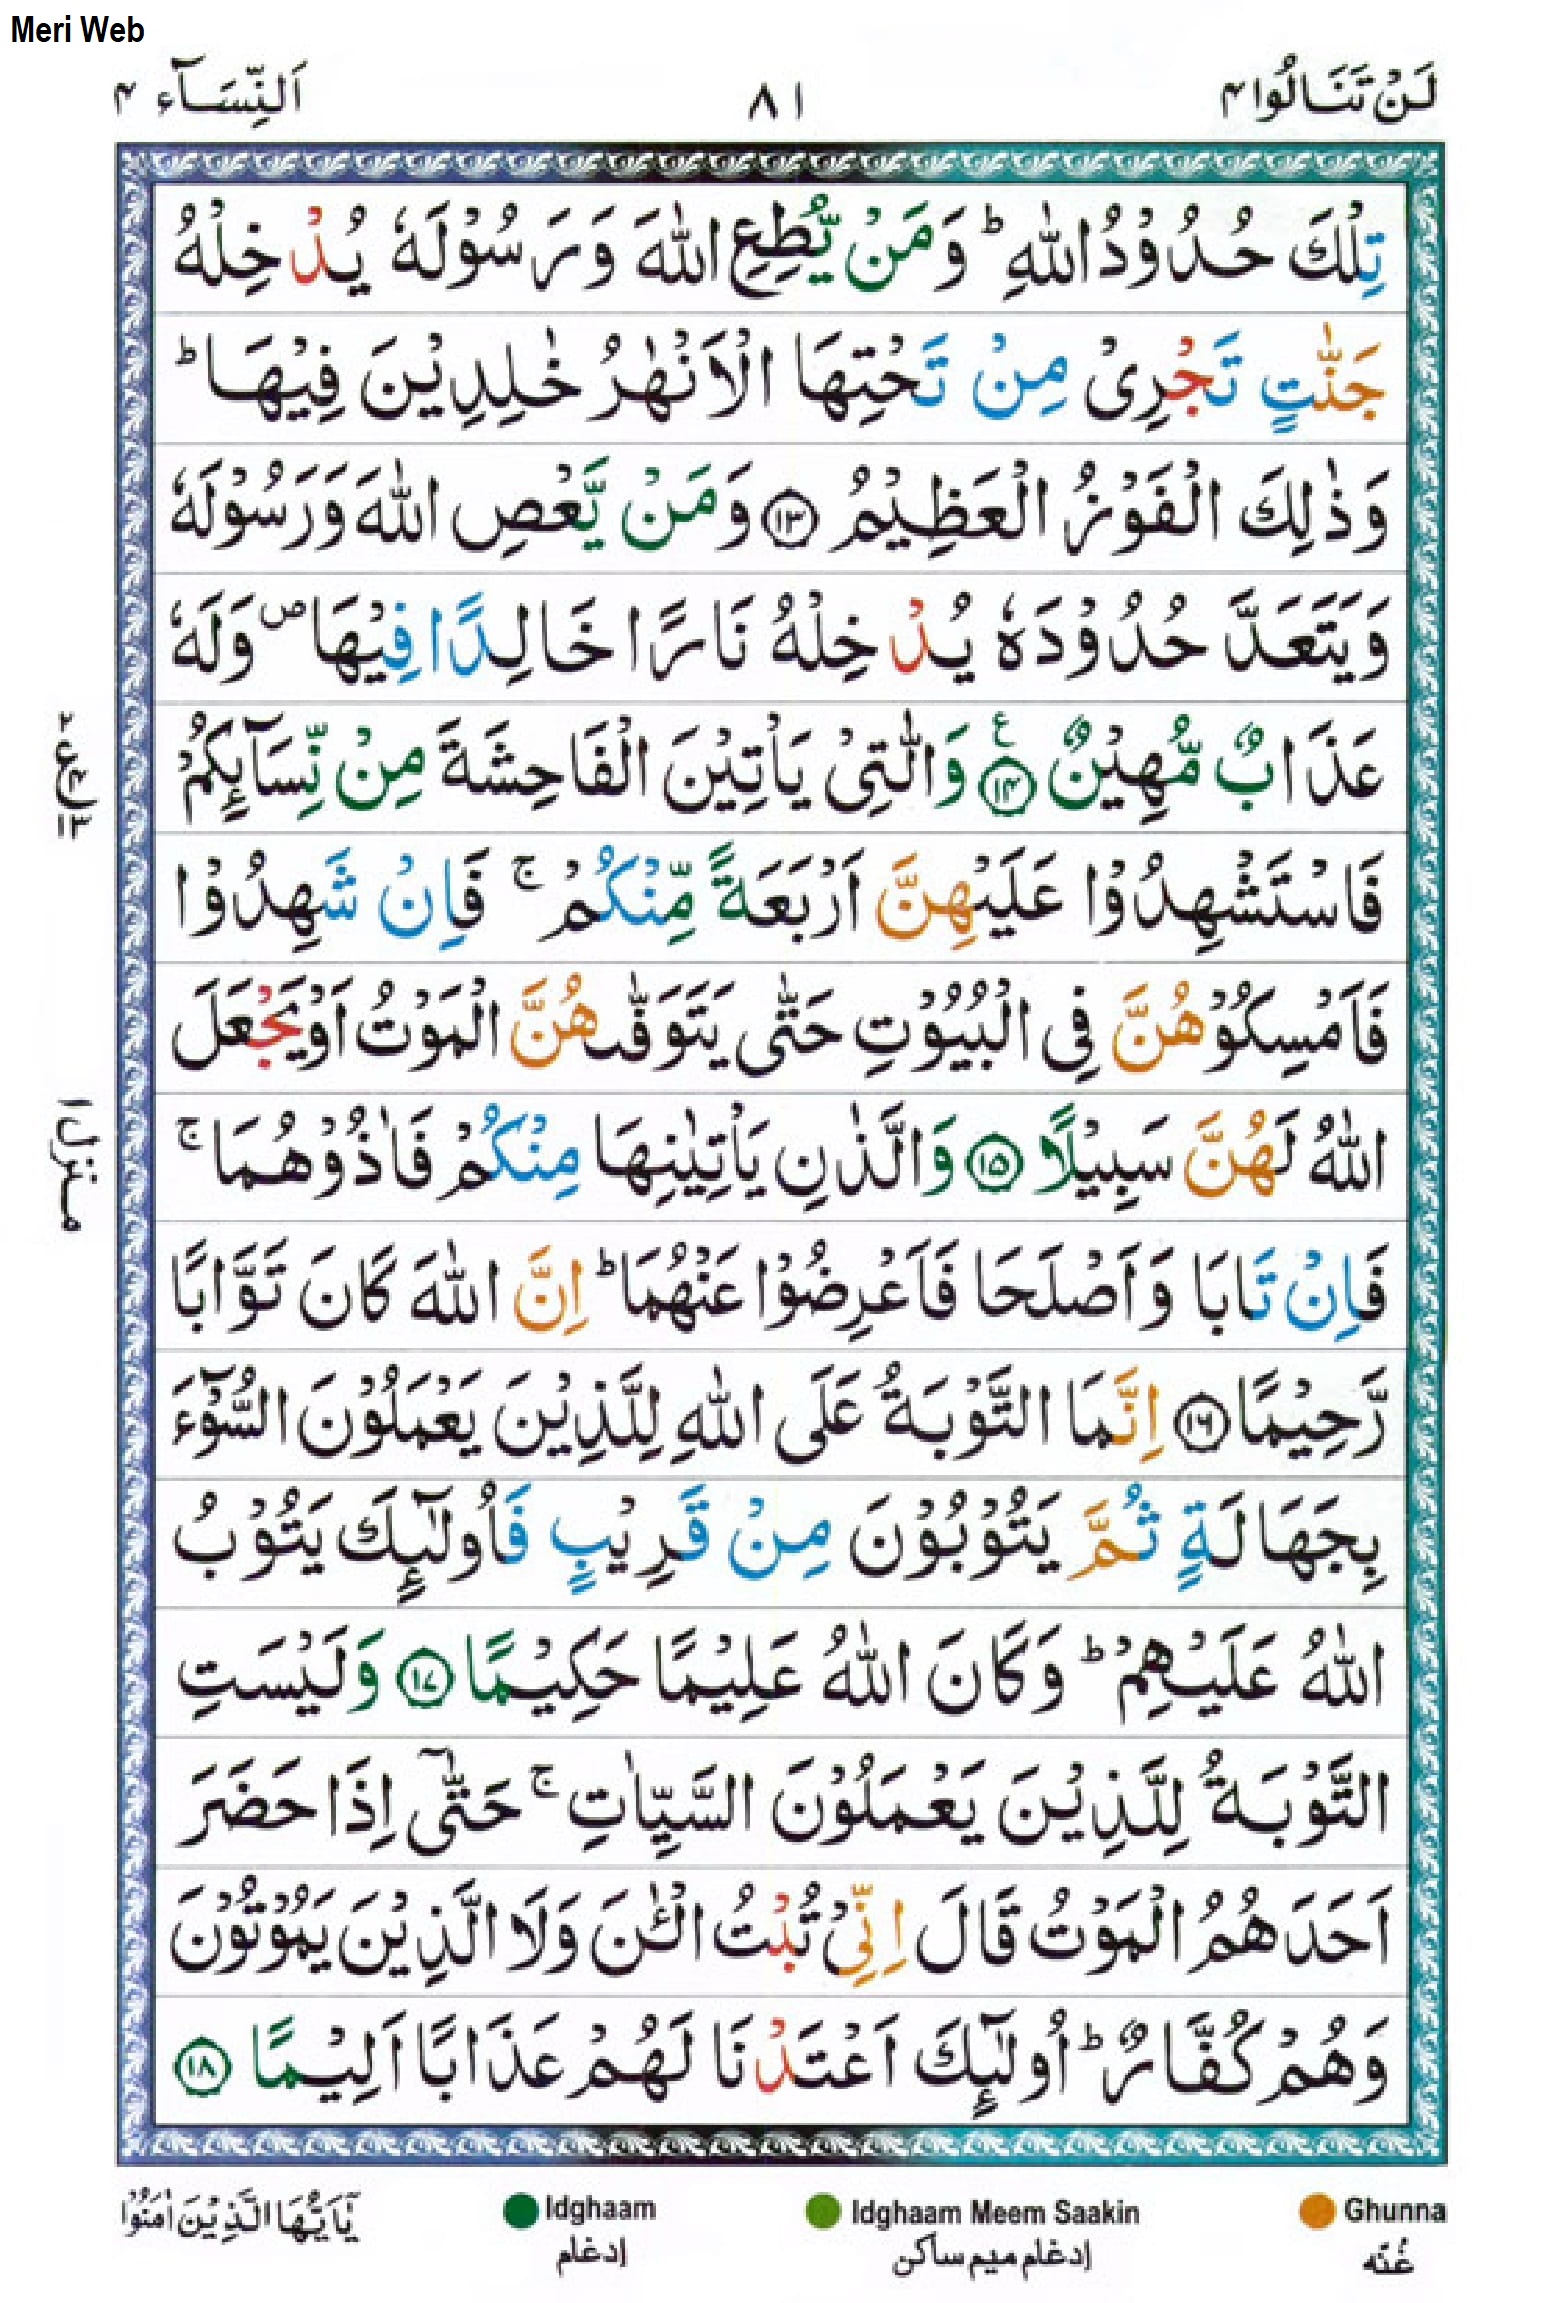 Meri Web
لَنْ تَنَالُوا ۴ ۸۱ اَلنِّسَآء ۴
تِلْكَ حُدُوْدُ اللّٰهِ ؕ وَمَنْ يُّطِعِ اللّٰهَ وَرَسُوْلَهٗ يُدْخِلْهُ
جَنّٰتٍ تَجْرِىْ مِنْ تَحْتِهَا الْاَنْهٰرُ خٰلِدِيْنَ فِيْهَا ؕ
وَذٰلِكَ الْفَوْزُ الْعَظِيْمُ ۝۱۳ وَمَنْ يَّعْصِ اللّٰهَ وَرَسُوْلَهٗ
وَيَتَعَدَّ حُدُوْدَهٗ يُدْخِلْهُ نَارًا خَالِدًا فِيْهَا ۪ وَلَهٗ
عَذَابٌ مُّهِيْنٌ ۝۱۴ ع وَالّٰتِىْ يَاْتِيْنَ الْفَاحِشَةَ مِنْ نِّسَآئِكُمْ
فَاسْتَشْهِدُوْا عَلَيْهِنَّ اَرْبَعَةً مِّنْكُمْ ۚ فَاِنْ شَهِدُوْا
فَاَمْسِكُوْهُنَّ فِى الْبُيُوْتِ حَتّٰى يَتَوَفّٰىهُنَّ الْمَوْتُ اَوْ يَجْعَلَ
اللّٰهُ لَهُنَّ سَبِيْلًا ۝۱۵ وَالَّذٰنِ يَاْتِيٰنِهَا مِنْكُمْ فَاٰذُوْهُمَا ۚ
فَاِنْ تَابَا وَاَصْلَحَا فَاَعْرِضُوْا عَنْهُمَا ؕ اِنَّ اللّٰهَ كَانَ تَوَّابًا
رَّحِيْمًا ۝۱۶ اِنَّمَا التَّوْبَةُ عَلَى اللّٰهِ لِلَّذِيْنَ يَعْمَلُوْنَ السُّوْٓءَ
بِجَهَالَةٍ ثُمَّ يَتُوْبُوْنَ مِنْ قَرِيْبٍ فَاُولٰٓئِكَ يَتُوْبُ
اللّٰهُ عَلَيْهِمْ ؕ وَكَانَ اللّٰهُ عَلِيْمًا حَكِيْمًا ۝۱۷ وَلَيْسَتِ
التَّوْبَةُ لِلَّذِيْنَ يَعْمَلُوْنَ السَّيِّاٰتِ ۚ حَتّٰٓى اِذَا حَضَرَ
اَحَدَهُمُ الْمَوْتُ قَالَ اِنِّىْ تُبْتُ الْئٰنَ وَلَا الَّذِيْنَ يَمُوْتُوْنَ
وَهُمْ كُفَّارٌ ؕ اُولٰٓئِكَ اَعْتَدْنَا لَهُمْ عَذَابًا اَلِيْمًا ۝۱۸
منزل ۱
يٰٓاَيُّهَا الَّذِيْنَ اٰمَنُوْا
Idghaam
إدغام
Idghaam Meem Saakin
إدغام ميم ساكن
Ghunna
غُنّه